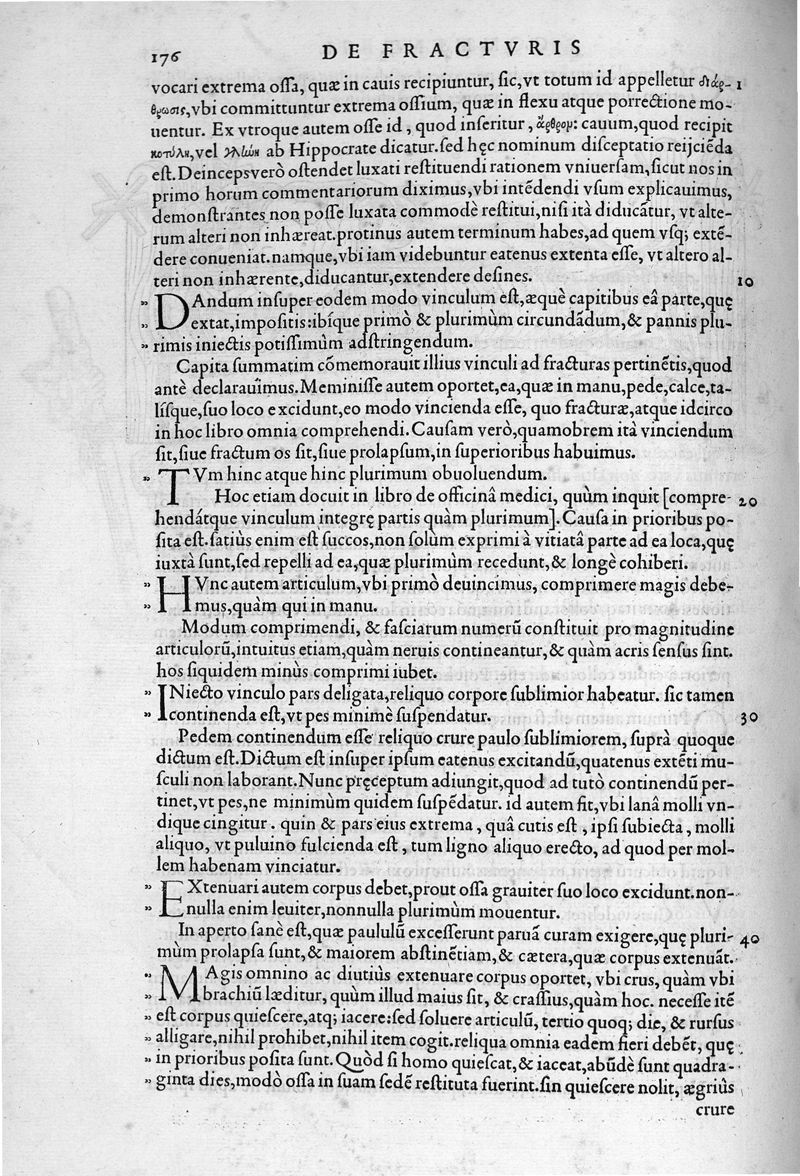 176 DE FRACTVRIS
vocari extrema ossa, quæ in cauis recipiuntur, sic, vt totum id appelletur διάρ- 1
θρωσις, vbi committuntur extrema ossium, quæ in flexu atque porrectione mo-
uentur. Ex vtroque autem osse id, quod inseritur, ἄρθρον: cauum, quod recipit
κοτύλη, vel γλίωη ab Hippocrate dicatur. sed hęc nominum disceptatio reijciẽda
est. Deinceps verò ostendet luxati restituendi rationem vniuersam, sicut nos in
primo horum commentariorum diximus, vbi intẽdendi vsum explicauimus,
demonstrantes non posse luxata commodè restitui, nisi ità diducãtur, vt alte-
rum alteri non inhæreat. protinus autem terminum habes, ad quem vsq; extẽ-
dere conueniat. namque, vbi iam videbuntur eatenus extenta esse, vt altero al-
teri non inhærente, diducantur, extendere desines. 10
„ DAndum insuper eodem modo vinculum est, æquè capitibus eâ parte, quę
„ extat, impositis: ibíque primò & plurimùm circundãdum, & pannis plu-
„ rimis iniectis potissimùm adstringendum.
Capita summatim cõmemorauit illius vinculi ad fracturas pertinẽtis, quod
antè declarauimus. Meminisse autem oportet, ea, quæ in manu, pede, calce, ta-
lísque, suo loco excidunt, eo modo vincienda esse, quo fracturæ, atque idcirco
in hoc libro omnia comprehendi. Causam verò, quamobrem ità vinciendum
sit, siue fractum os sit, siue prolapsum, in superioribus habuimus.
„ TVm hinc atque hinc plurimum obuoluendum.
Hoc etiam docuit in libro de officinâ medici, quùm inquit [compre- 20
hendátque vinculum integrę partis quàm plurimum]. Causa in prioribus po-
sita est. satiùs enim est succos, non solùm exprimi à vitiatâ parte ad ea loca, quę
iuxtà sunt, sed repelli ad ea, quæ plurimùm recedunt, & longè cohiberi.
„ HVnc autem articulum, vbi primò deuincimus, comprimere magis debe-
„ mus, quàm qui in manu.
Modum comprimendi, & fasciarum numerũ constituit pro magnitudine
articulorũ, intuitus etiam, quàm neruis contineantur, & quàm acris sensus sint.
hos siquidem minùs comprimi iubet.
„ INiecto vinculo pars deligata, reliquo corpore sublimior habeatur. sic tamen
„ continenda est, vt pes minimè suspendatur. 30
Pedem continendum esse reliquo crure paulo sublimiorem, suprà quoque
dictum est. Dictum est insuper ipsum eatenus excitandũ, quatenus extẽti mu-
sculi non laborant. Nunc pręceptum adiungit, quod ad tutò continendũ per-
tinet, vt pes, ne minimùm quidem suspẽdatur. id autem fit, vbi lanâ molli vn-
dique cingitur. quin & pars eius extrema, quâ cutis est, ipsi subiecta, molli
aliquo, vt puluino fulcienda est, tum ligno aliquo erecto, ad quod per mol-
lem habenam vinciatur.
„ EXtenuari autem corpus debet, prout ossa grauiter suo loco excidunt. non-
„ nulla enim leuiter, nonnulla plurimùm mouentur.
In aperto sanè est, quæ paululũ excesserunt paruã curam exigere, quę pluri- 40
mùm prolapsa sunt, & maiorem abstinẽtiam, & cætera, quæ corpus extenuãt.
„ MAgis omnino ac diutiùs extenuare corpus oportet, vbi crus, quàm vbi
„ brachiũ læditur, quùm illud maius sit, & crassius, quàm hoc. necesse itẽ
„ est corpus quiescere, atq; iacere: sed soluere articulũ, tertio quoq; die, & rursus
„ alligare, nihil prohibet, nihil item cogit. reliqua omnia eadem fieri debẽt, quę
„ in prioribus posita sunt. Quòd si homo quiescat, & iaceat, abũdè sunt quadra-
„ ginta dies, modò ossa in suam sedẽ restituta fuerint. sin quiescere nolit, ægriùs
crure